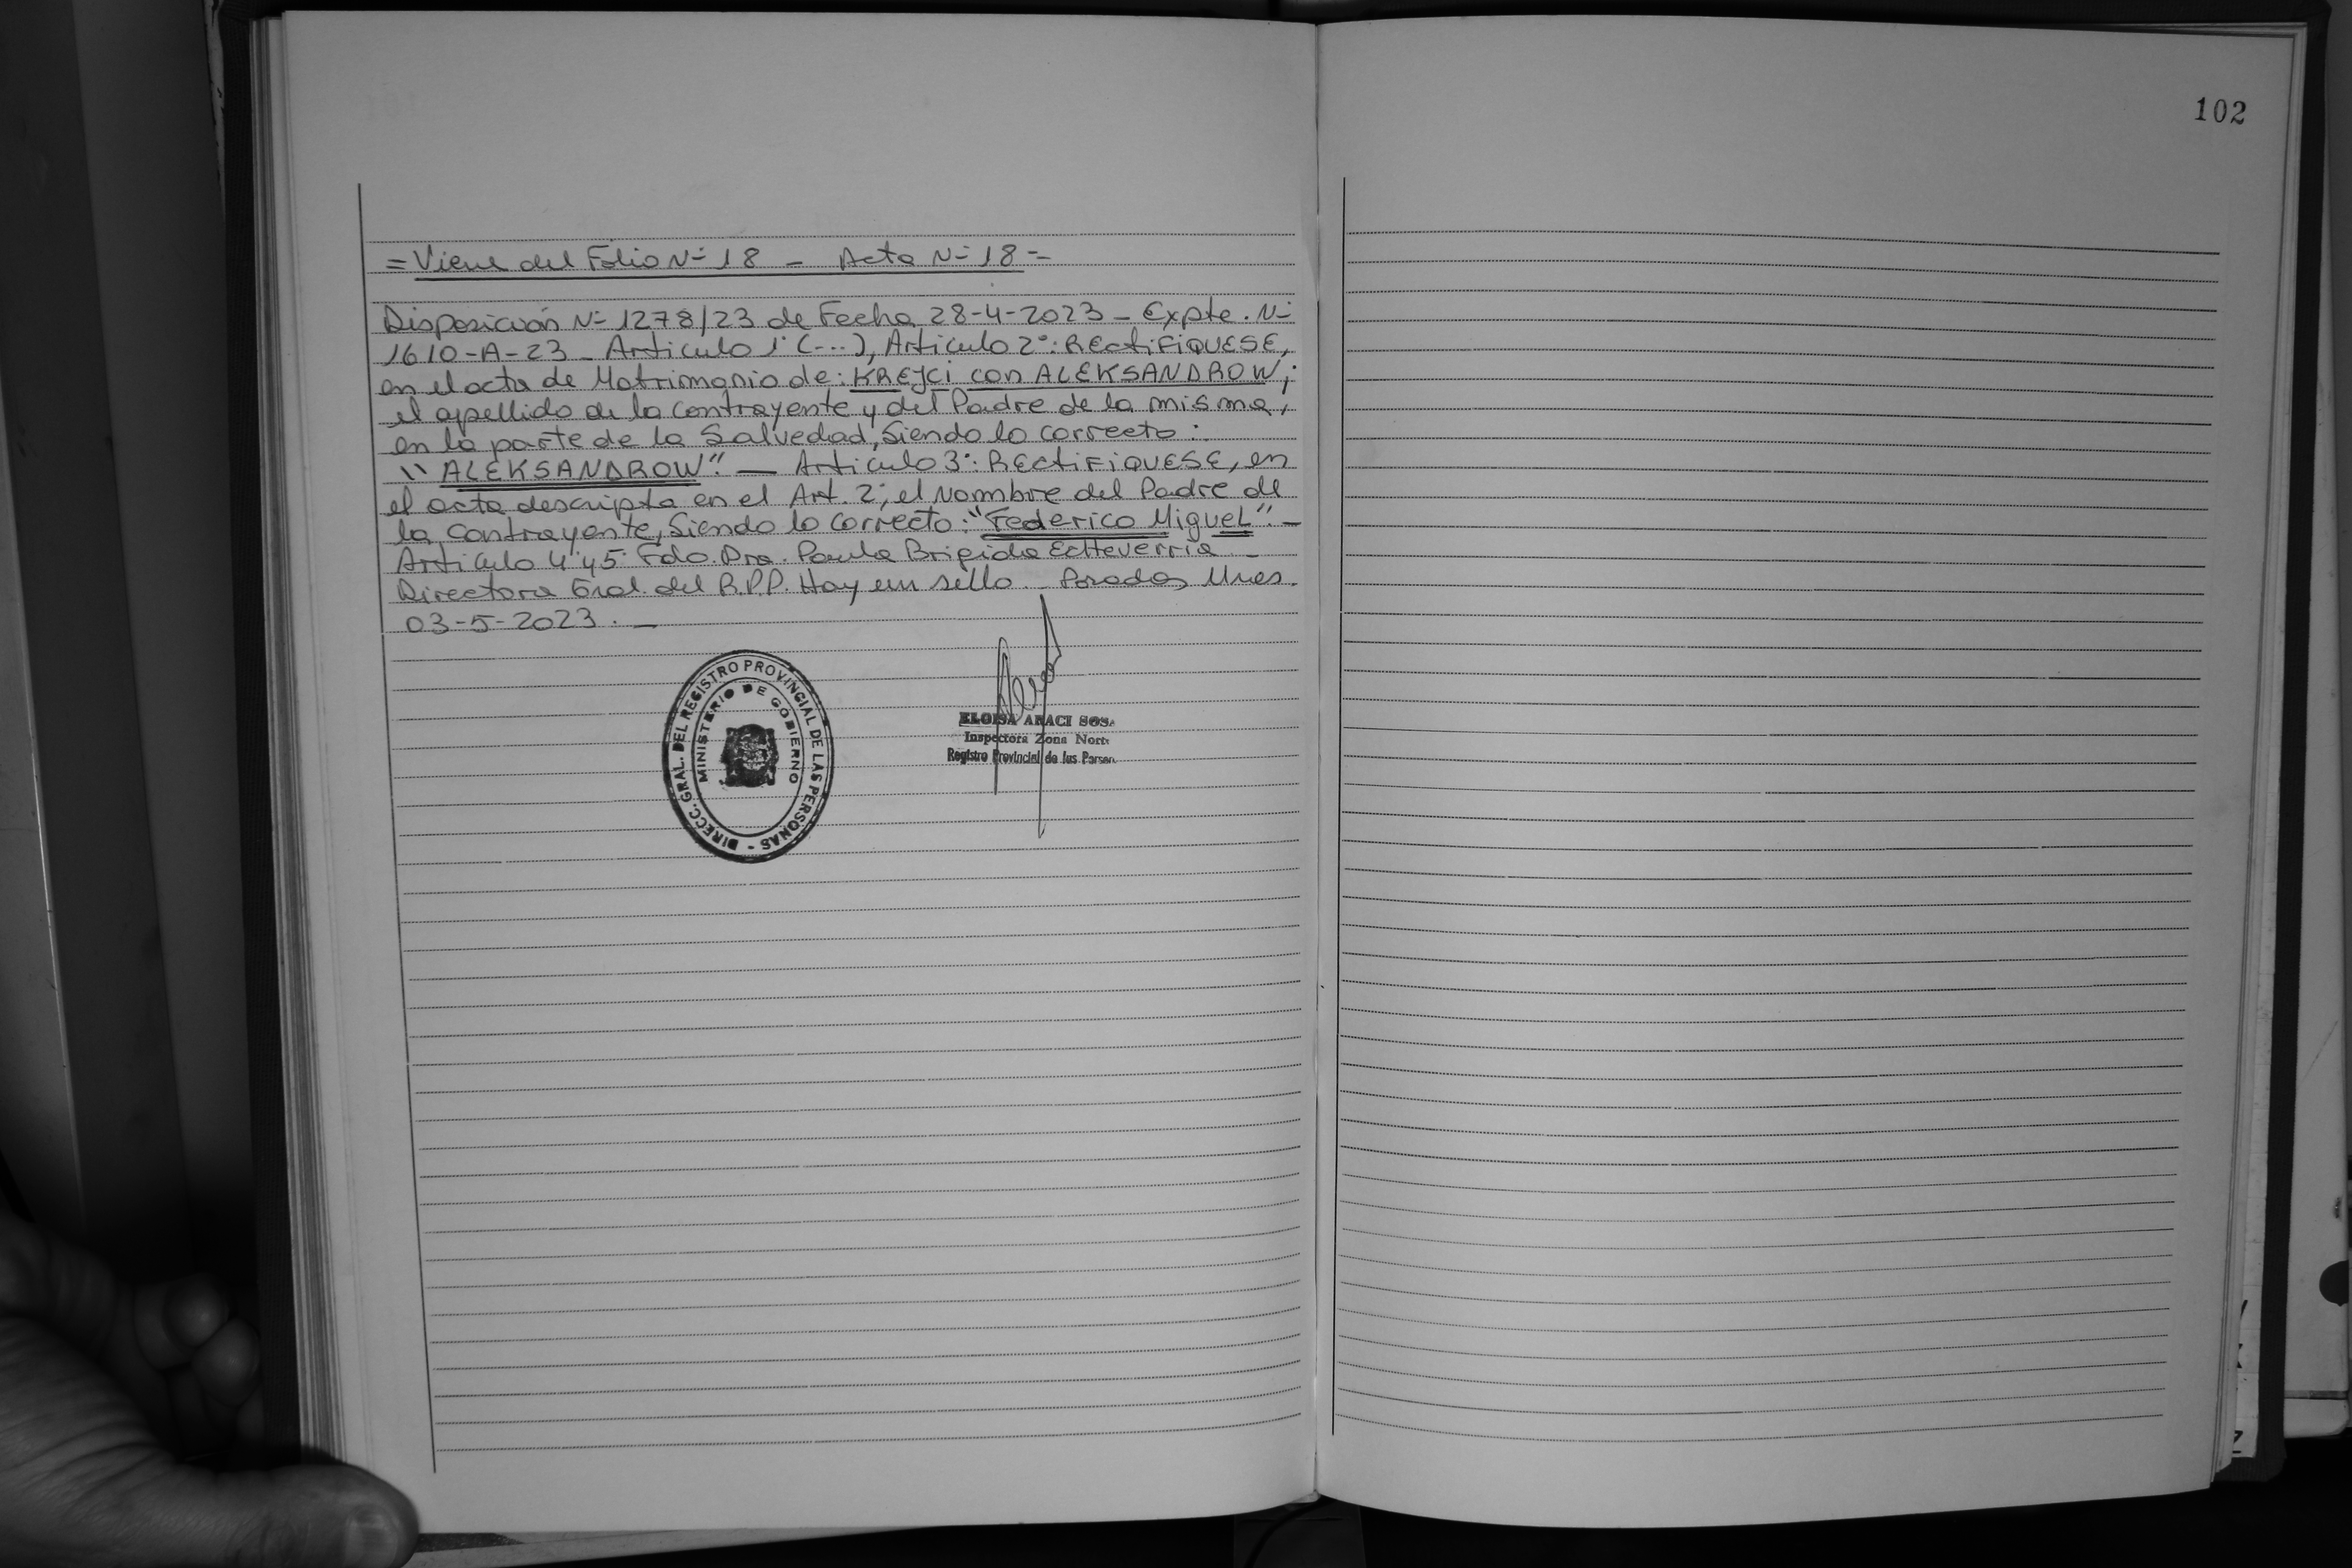 102
= Viene del Folio Nº 18 _ Acta Nº 18 =
Disposición Nº 1278/23 de Fecha 28-4-2023 _ Expte. Nº
1610-A-23 _ Articulo 1º (---), Articulo 2º: RECtiFiQUESE,
en el acta de Matrimonio de: KREJCi con ALEKSANDROW;
el apellido de la contrayente y del Padre de la misma,
en la parte de la Salvedad, Siendo lo correcto:
"ALEKSANDROW". _ Articulo 3º: RECtiFiQUESE, en
el acta descripta en el Art. 2º, el Nombre del Padre de
la Contrayente, Siendo lo correcto: "Federico Miguel". _
Articulo 4º y 5º Fdo. Dra. Paula Brigida Echeverria _
Directora Gral. del R.P.P. Hay un sello _ Posadas, Mnes.
03-5-2023. _
DIRECC. GRAL. DEL REGISTRO PROVINCIAL DE LAS PERSONAS -
MINISTERIO DE GOBIERNO
ELOISA ARACI SOSA
Inspectora Zona Norte
Registro Provincial de las Person